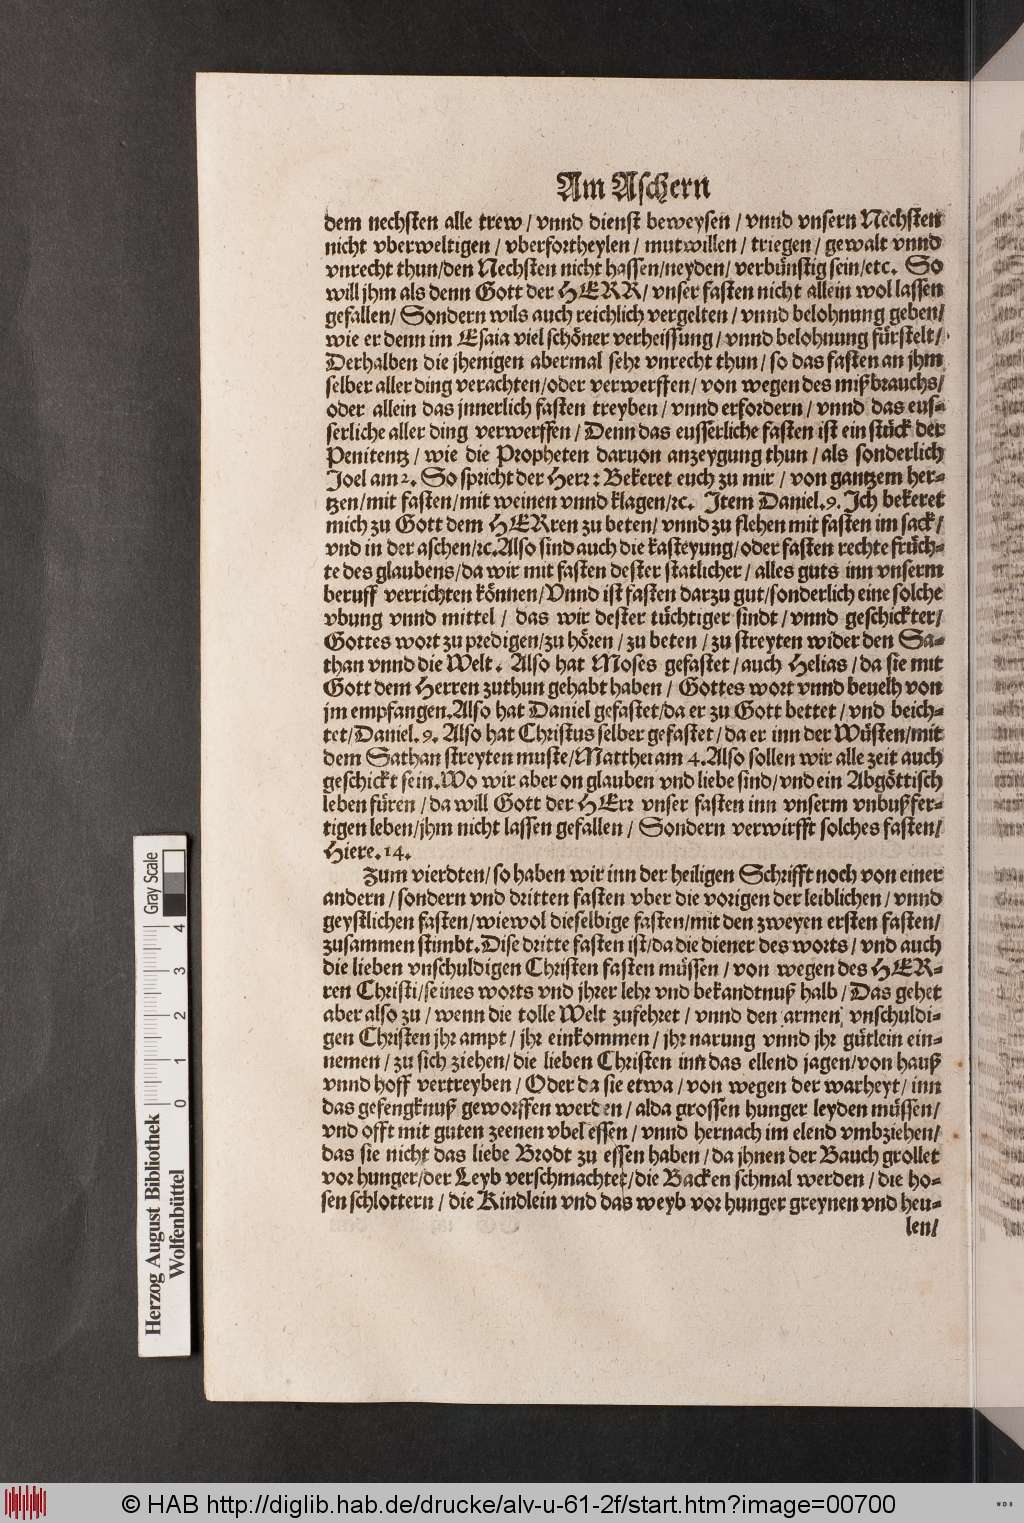 Am Aschern
dem nechsten alle trew / vnnd dienst beweysen / vnnd vnsern Nechsten
nicht vberweltigen / vberfortheylen / mutwillen / triegen / gewalt vnnd
vnrecht thun/den Nechsten nicht hassen/neyden/ verbünstig sein/etc. So
will jhm als denn Gott der HERR/ vnser fasten nicht allein wol lassen
gefallen/ Sondern wils auch reichlich vergelten / vnnd belohnung geben/
wie er denn im Esaia viel schöner verheissung/ vnnd belohnung fürstelt/
Derhalben die jhenigen abermal sehr vnrecht thun / so das fasten an jhm
selber aller ding verachten/oder verwerffen / von wegen des mißbrauchs/
oder allein das jnnerlich fasten treyben / vnnd erfordern / vnnd das eus-
serliche aller ding verwerffen / Denn das eusserliche fasten ist ein stück der
Penitentz / wie die Propheten daruon anzeygung thun / als sonderlich
Joel am 2. So spricht der Herr: Bekeret euch zu mir / von gantzem her-
tzen/mit fasten/mit weinen vnnd klagen/rc. Item Daniel.9. Ich bekeret
mich zu Gott dem HERren zu beten/ vnnd zu flehen mit fasten im sack/
vnd in der aschen/rc.Also sind auch die kasteyung/oder fasten rechte früch-
te des glaubens/da wir mit fasten dester statlicher / alles guts inn vnserm
beruff verrichten können/Vnnd ist fasten darzu gut/sonderlich eine solche
vbung vnnd mittel / das wir dester tüchtiger sindt / vnnd geschickter/
Gottes wort zu predigen/zu hören / zu beten / zu streyten wider den Sa-
than vnnd die Welt. Also hat Moses gefastet / auch Helias / da sie mit
Gott dem Herren zuthun gehabt haben / Gottes wort vnnd beuelh von
jm empfangen.Also hat Daniel gefastet/da er zu Gott bettet / vnd beich-
tet/Daniel.9. Also hat Christus selber gefastet / da er inn der Wüsten/mit
dem Sathan streyten muste/Matthei am 4.Also sollen wir alle zeit auch
geschickt sein.Wo wir aber on glauben vnd liebe sind/vnd ein Abgöttisch
leben füren / da will Gott der HErr vnser fasten inn vnserm vnbußfer-
tigen leben/jhm nicht lassen gefallen / Sondern verwirfft solches fasten/
Hiere.14.
Zum vierdten/so haben wir inn der heiligen Schrifft noch von einer
andern / sondern vnd dritten fasten vber die vorigen der leiblichen / vnnd
geystlichen fasten/wiewol dieselbige fasten/mit den zweyen ersten fasten/
zusammen stimbt.Dise dritte fasten ist/da die diener des worts / vnd auch
die lieben vnschuldigen Christen fasten müssen / von wegen des HER-
ren Christi/seines worts vnd jhrer lehr vnd bekandtnuß halb / Das gehet
aber also zu / wenn die tolle Welt zufehret / vnnd den armen vnschuldi-
gen Christen jhr ampt / jhr einkommen / jhr narung vnnd jhr gütlein ein-
nemen / zu sich ziehen/die lieben Christen inn das ellend jagen/von hauß
vnnd hoff vertreyben / Oder da sie etwa / von wegen der warheyt / inn
das gefengknuß geworffen werden / alda grossen hunger leyden müssen/
vnd offt mit guten zeenen vbel essen / vnnd hernach im elend vmbziehen/
das sie nicht das liebe Brodt zu essen haben / da jhnen der Bauch grollet
vor hunger/der Leyb verschmachtet/die Backen schmal werden / die ho-
sen schlottern / die Kindlein vnd das weyb vor hunger greynen vnd heu-
len/
Herzog August Bibliothek
Wolfenbüttel
0 1 2 3 4
Gray Scale
© HAB http://diglib.hab.de/drucke/alv-u-61-2f/start.htm?image=00700